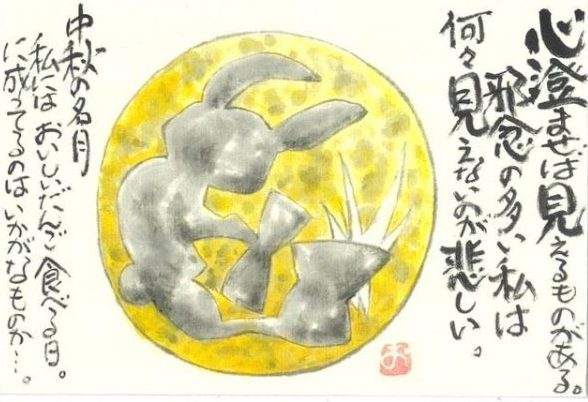 心澄ませば見えるものがある。
邪念の多い私は
何々見えないのが悲しい。
中秋の名月
私にはおいしいだんご食べる日。
に成ってるのはいかがなものか…。
お